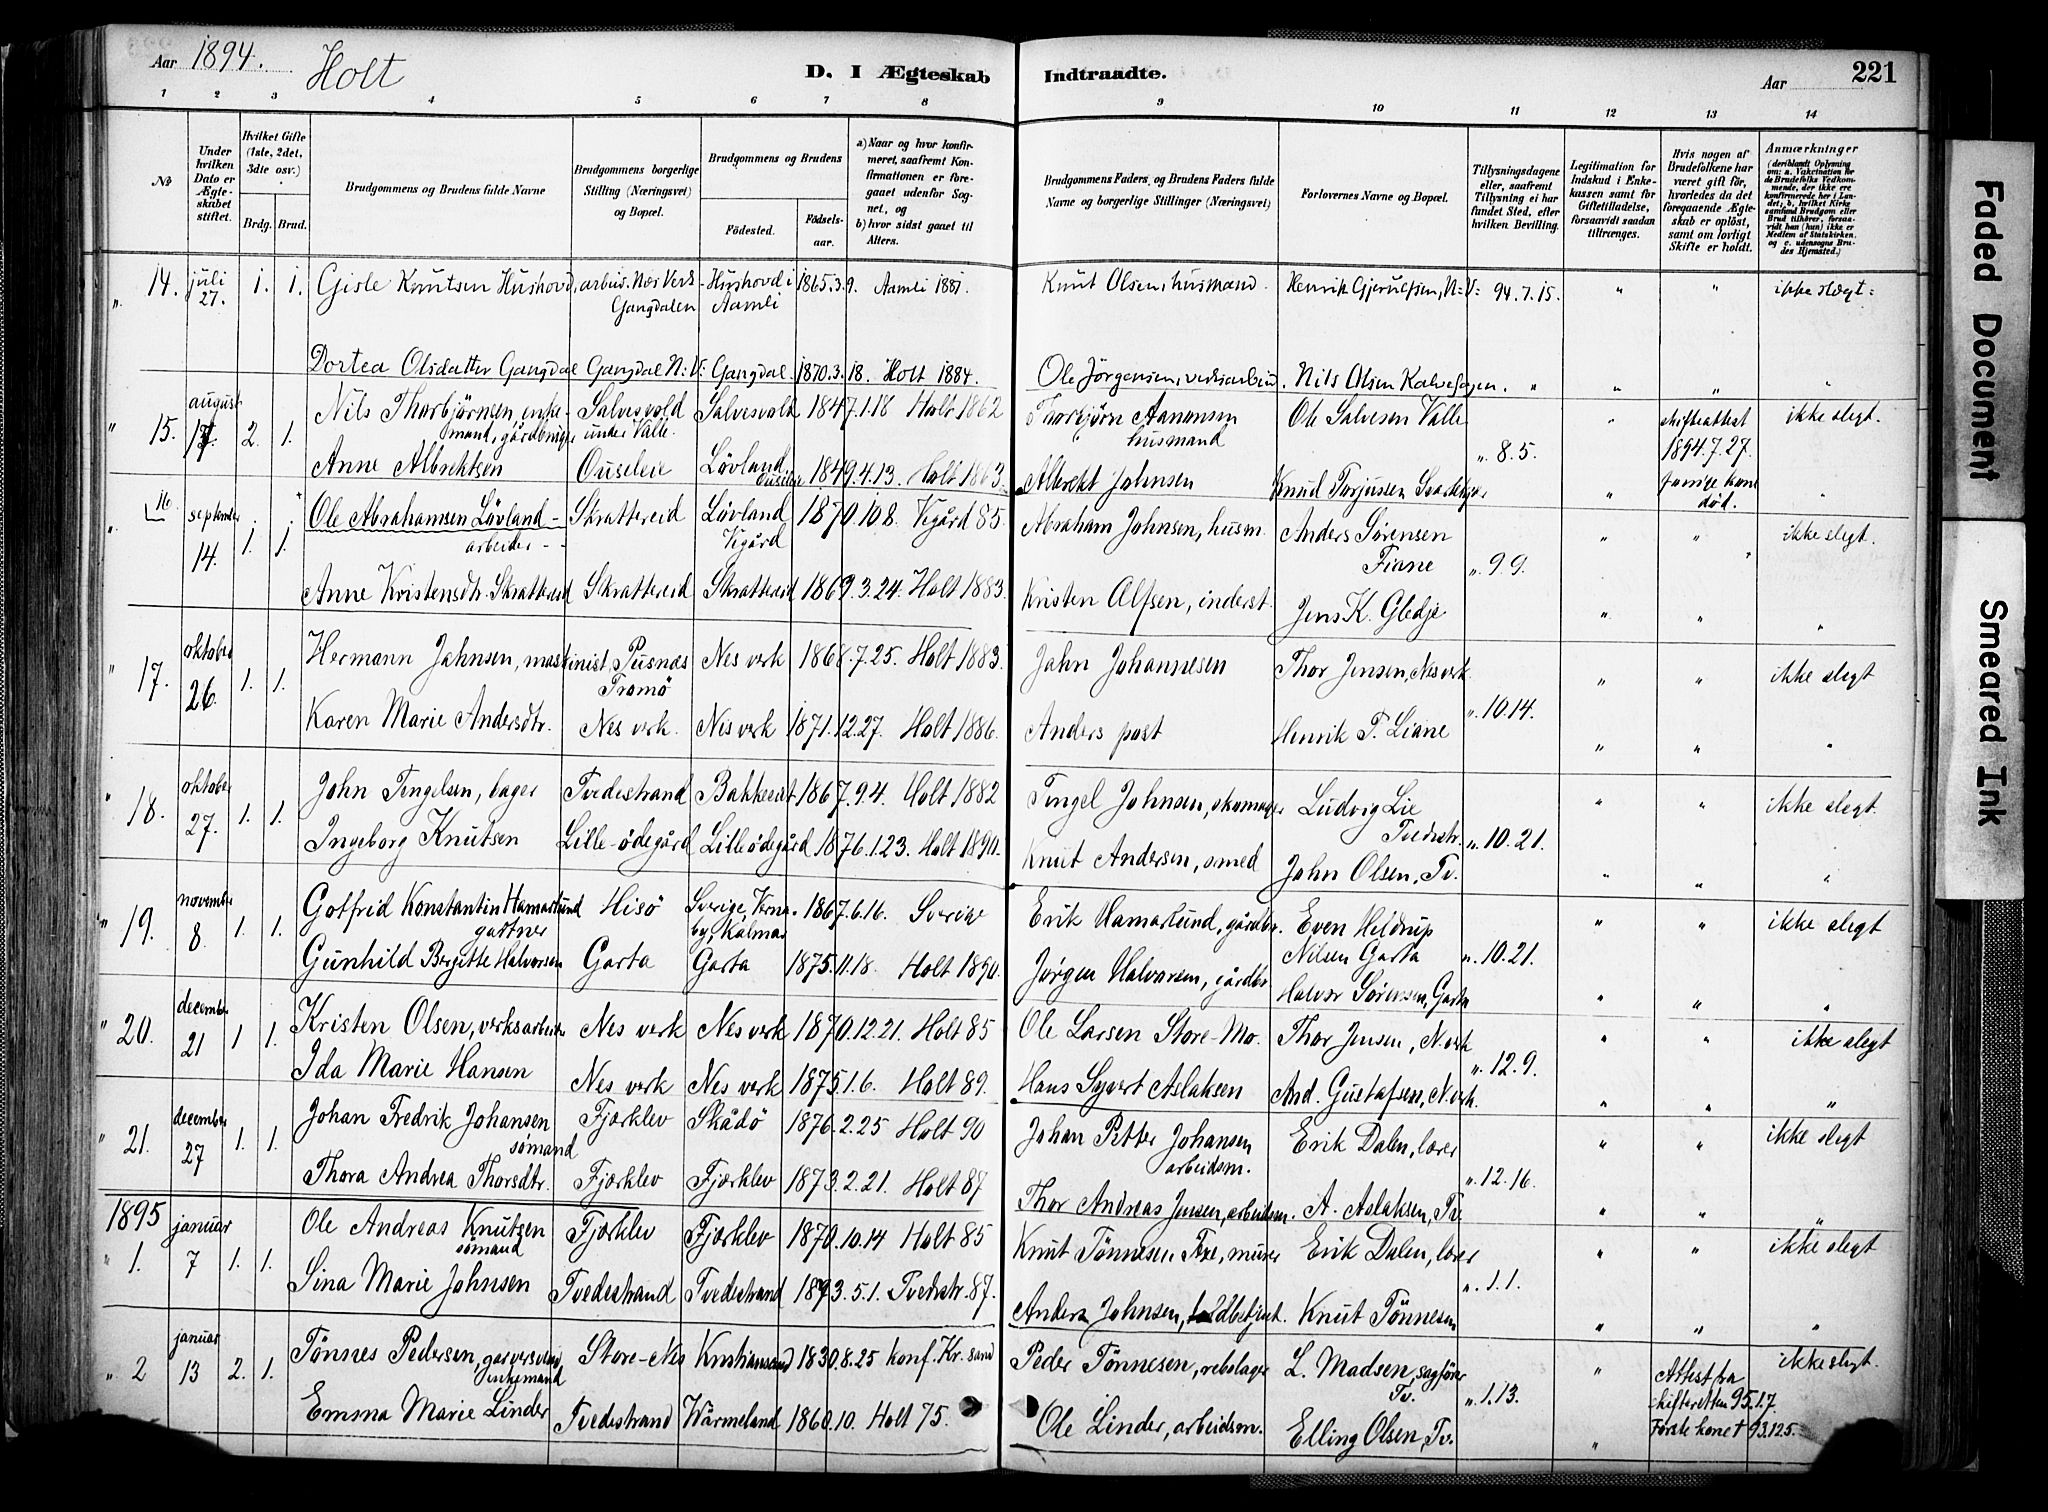 Aar 1894. Holt D. I Ægteskab Indtraadte. Aar 221
1 2 3 4 5 6 7 8 9 10 11 12 13 14
No
Under hvilken Dato er Ægteskabet stiftet.
Hvilket Gifte (1ste, 2det, 3die osv.)
Brdg. Brud.
Brudgommens og Brudens fulde Navne
Brudgommens borgerlige Stilling (Næringsvei) og Bopæl.
Brudgommens og Brudens
Fødested. Fødselsaar.
a) Naar og hvor konfirmeret, saafremt Konfirmationen er foregaaet udenfor Sognet, og
b) hvor sidst gaaet til Alters.
Brudgommens Faders, og Brudens Faders fulde Navne og borgerlige Stillinger (Næringsvei)
Forlovernes Navne og Bopæl.
Tillysningsdagene eller, saafremt Tillysning ei har fundet Sted, efter hvilken Bevilling.
Legitimation for Indskud i Enkekassen samt for Giftetilladelse, forsaavidt saadan tiltrænges.
Hvis nogen af Brudefolkene har været gift før, hvorledes da det foregaaende Ægteskab er opløst, samt om lovligt Skifte er holdt.
Anmærkninger (deriblandt Oplysning om: a. Vakcination for de Brudefolks Vedkommende, der ikke ere konfirmerede her i Landet; b, hvilket Kirkesamfund Brudgom eller Brud tilhører, forsaavidt han (hun) ikke er Medlem af Statskirken, og c. udensogns Brudes Hjemsted.)
" 14. juli 27. 1. 1. Gisle Knutsen Hushovd, arbeid. Nes Verk Gangdalen Hushovd i Aamli 1865.3.9. Aamli 1881. Knut Olsen, husmand. Henrik Gjerulfsen, N:V: 94.7.15. " " ikke slegt:
Dortea Olsdatter Gangdal Gangdal N:V: Gangdal. 1870.3.18. Holt 1884. Ole Jörgensen, verksarbeid. Nils Olsen Kalvehagen. " " " "
" 15. august 17. 2. 1. Nils Thorbjörnsen, enkemand, gårdbruger Salvesvold under Valle. Salvesvold 1847.1.18 Holt 1862 Thorbjørn Aanonsen husmand Ole Salvesen Valle ". 8.5. " skifteattest 1894.7.27. forrige kone död. ikke slegt.
Anne Albrektsen Ouseleie Lövland, Ouseleie 1849.4.13. Holt 1863. Albrekt Johnsen Knud Torjussen " "
" 16. september 14. 1. 1. Ole Abrahamsen Lövland arbeider Skrattereid Lövland Vegård 1870.10.8. Vegård 85. Abraham Johnsen, husm. Anders Sørensen Fiane ". 9.9. " " ikke slegt.
Anne Kristensdtr. Skrattereid Skrattereid Skrattereid 1869.3.24. Holt 1883. Kristen Alfsen, inderst. Jens K. Gledje " " "
" 17. oktober 26. 1. 1. Hermann Jahnsen, maskinist Pusnæs Tromö Nes verk 1868.7.25. Holt 1883. Jahn Johannesen Thor Jensen, Nes verk. ". 10.14. " " ikke slegt
Karen Marie Andersdtr. Nes verk. Nes verk 1871.12.27. Holt 1886. Anders post Henrik P. Liane " " "
" 18. oktober 27. 1. 1. John Tengelsen, bager Tvedestrand 1867.9.4. Holt 1882 Tengel Johnsen, skomager Ludvig Lie Tvedestr. ". 10.21. " " ikke slegt
Ingeborg Knutsen Lille-ödegård Lille ödegård 1876.1.23. Holt 1890. Knut Andersen, smed John Olsen, Tv. " " "
" 19. november 8. 1. 1. Gotfrid Konstantin Hamarlund gartner Hisö Sverige, Kalmar 1867.6.16. Sverige Erik Hamarlund, gårdbr. Even Heldrup Nilsen Garta ". 10.21. " " ikke slegt
Gunhild Bergitte Halvorsen Garta Garta 1875.11.18. Holt 1890. Jørgen Halvorsen, gårdbr. Halvor Sørensen, Garta " " "
" 20. december 21 1 1. Kristen Olsen, verksarbeider Nes verk Nes verk 1870.12.21. Holt 85 Ole Larsen Store-Mo. Thor Jensen, N. verk ". 12.9. " " ikke slegt
Ida Marie Hansen Nes verk Nes verk 1875.1.6. Holt 89. Hans Syvert Aslaksen And. Gustafsen, N. verk. " " "
" 21. december 27 1. 1. Johan Fredrik Johansen sømand Fjærklev Skådö 1876.2.25 Holt 90 Johan Petter Johansen arbeidsm. Erik Dalen, lærer ". 12.16. " " ikke slegt
Thora Andrea Thorsdtr. Fjærklev Fjærklev 1873.2.21. Holt 87 Thor Andreas Jensen, arbeidsm. A. Aslaksen, Tv. " " "
1895
" 1. januar 7 1. 1. Ole Andreas Knutsen sömand Fjærklev Fjærklev 1870.10.14 Holt 85 Knut Tönnesen Fxe, murer Erik Dalen, lærer ". 1.1. " " ikke slegt
Sina Marie Johnsen Tvedestrand Tvedestrand 1873.5.1. Tvedestr. 87. Anders Johnsen, Knut Tönnesen " " "
" 2 januar 13 2. 1. Tönnes Pedersen, enkemand Store-Nes Kristiansand 1830.8.25 konf. Kr.sand Peder Tönnesen, rebslager L. Madsen, sagfører Tv. ". 1.13. " Attest fra skifteretten 95.1.7. Første kone † 93.12.5. ikke slegt.
Emma Marie Linder Tvedestrand Wärmeland 1860.10. Holt 75. Ole Linder, arbeidsm. Elling Olsen, Tv. "
Faded Document
Smeared Ink